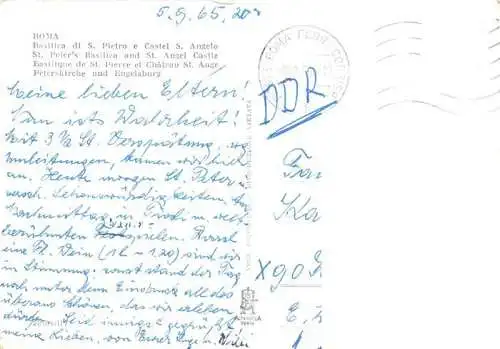 5.9.65, 20⁰⁰
ROMA
Basilica di S. Pietro e Castel S. Angelo
St. Peter's Basilica and St. Angel Castle
Basilique de St. Pierre et Château St. Ange
Peterskirche und Engelsburg
ROMA FERR.
DDR
Meine lieben Eltern!
Nun ists Wahrheit!
Mit 3 ½ St. Verspätung,
Umleitungen, kamen wir hier
an. Heute morgen St. Peter
versch. Sehenswürdigkeiten.
Nachmittag in Tivoli m. welt
berühmten spielen. Rasch
eine Fl. Wein (1 l - 1.20) sind wir
in Stimmung; sonst stand der Tag
noch unter dem Eindruck all des
überaus Schönen, das wir erleben
dürfen. Seid innigst gegrüßt
meine Lieben, von Eurer Inge u. Willi
Fam
Ka
X90
E.